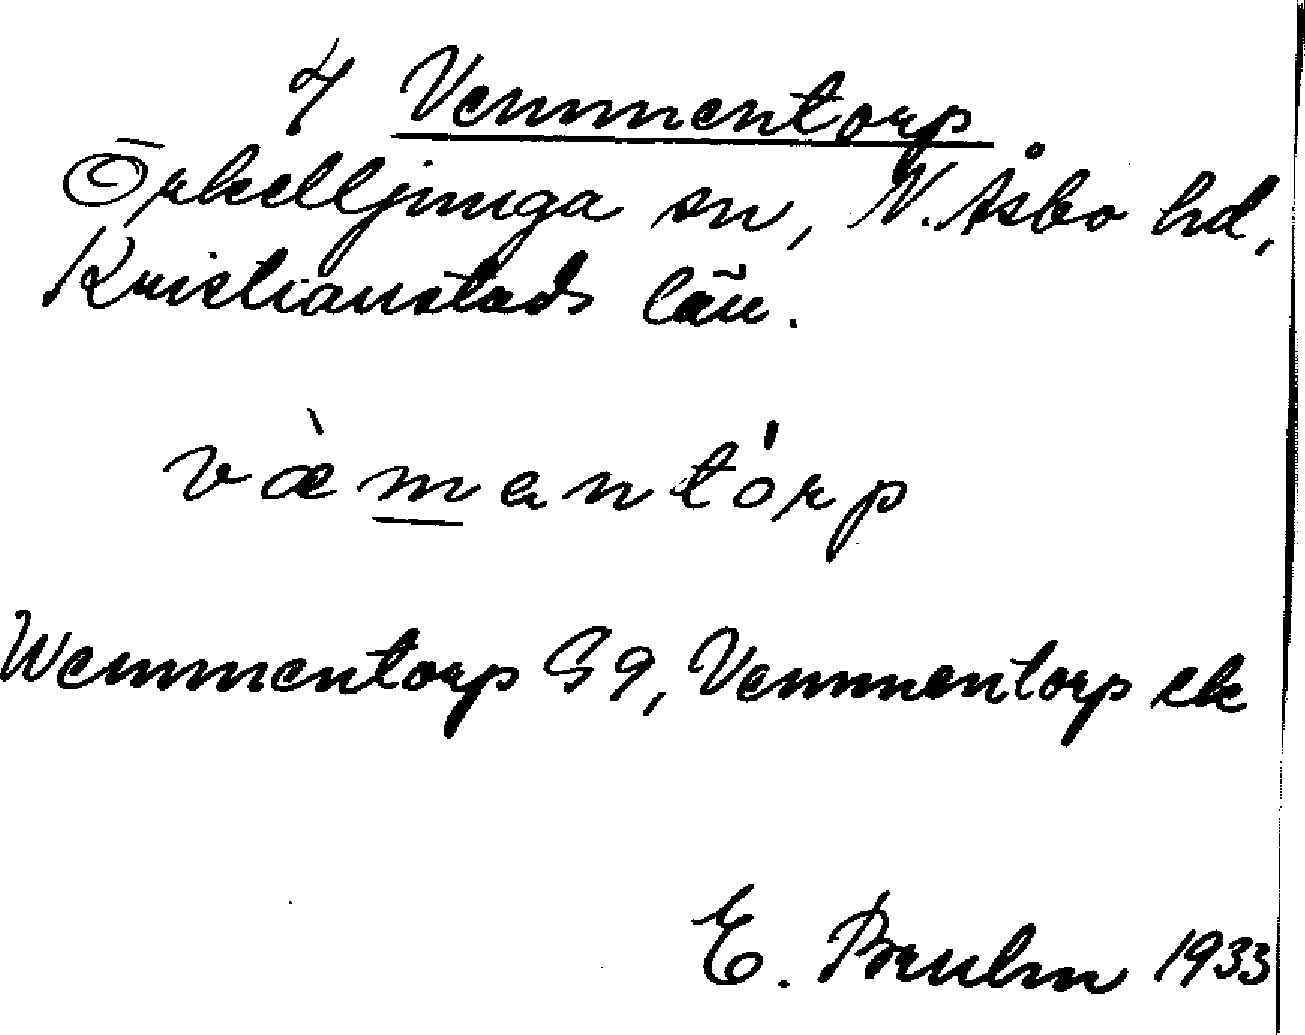 4 Vemmentorp
Örkelljunga sn, N. Åsbo hd,
Kristianstads län.
væ̀mantórp
Wemmentorp G9, Vemmentorp ek
E. 1933